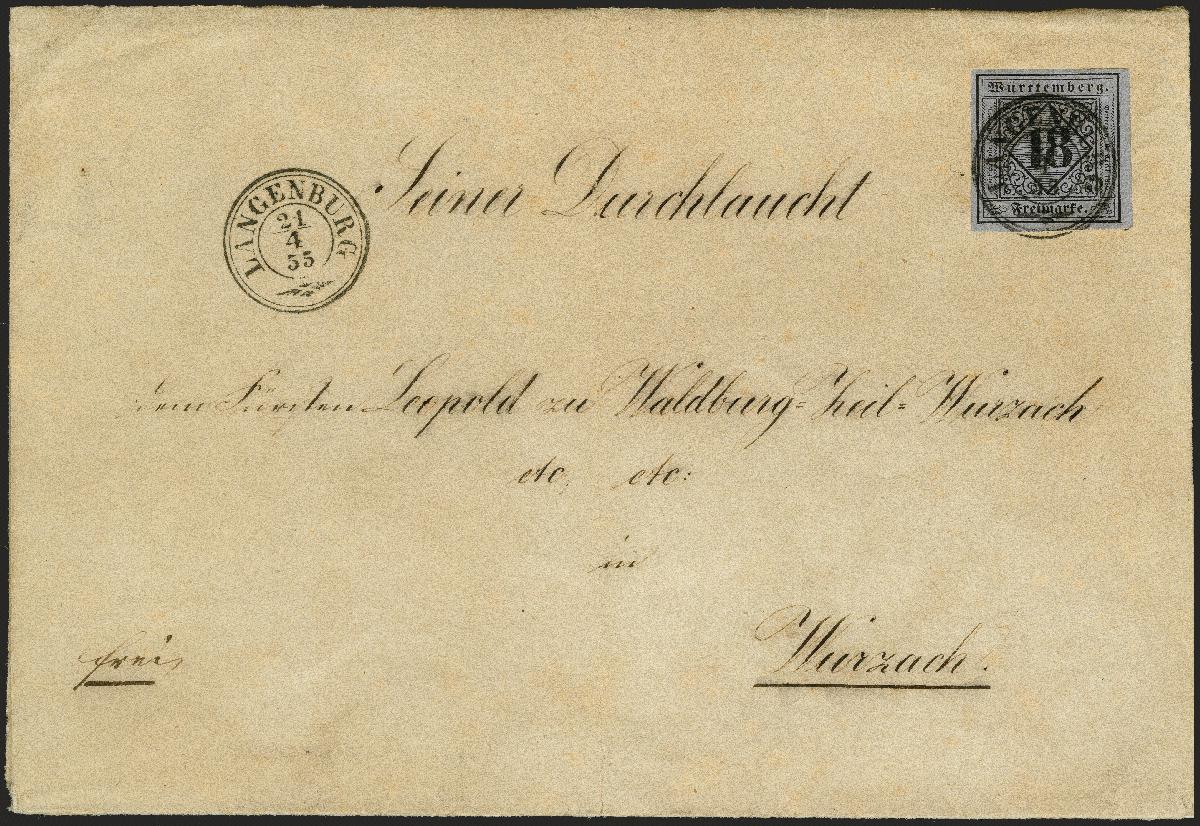 Württemberg.
18
Freimarke.
LANGENBURG
21
4
55
Seiner Durchlaucht
dem Fürsten Leopold zu Waldburg=Zeil=Wurzach
etc, etc:
in
Wurzach.
frei